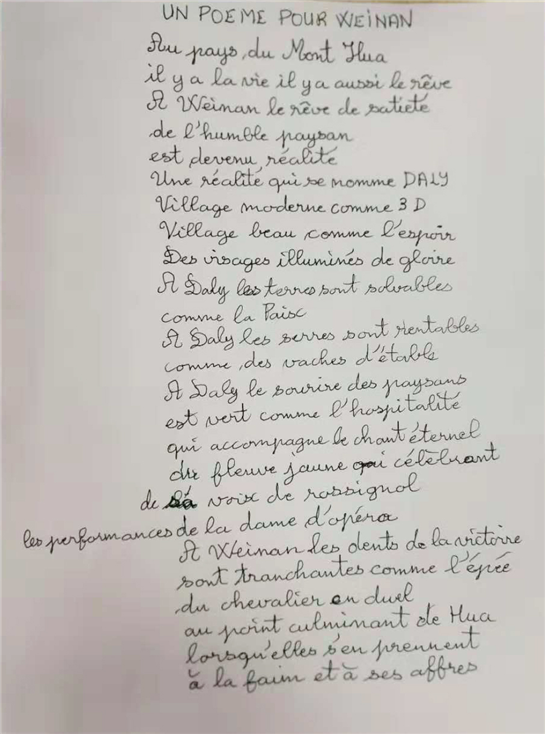 UN POEME POUR WEINAN
Au pays du Mont Hua
il y a la vie il y a aussi le rêve
A Weinan le rêve de satiété
de l'humble paysan
est devenu réalité
Une réalité qui se nomme DALY
Village moderne comme 3D
Village beau comme l'espoir
Des visages illuminés de gloire
A Daly les terres sont solvables
comme la Paix
A Daly les serres sont rentables
comme des vaches d'étable
A Daly le sourire des paysans
est vert comme l'hospitalité
qui accompagne le chant éternel
du fleuve jaune qui célèbrent
de sa voix de rossignol
les performances de la dame d'opéra
A Weinan les dents de la victoire
sont tranchantes comme l'épée
du chevalier en duel
au point culminant de Hua
lorsqu'elles s'en prennent
à la faim et à ses affres